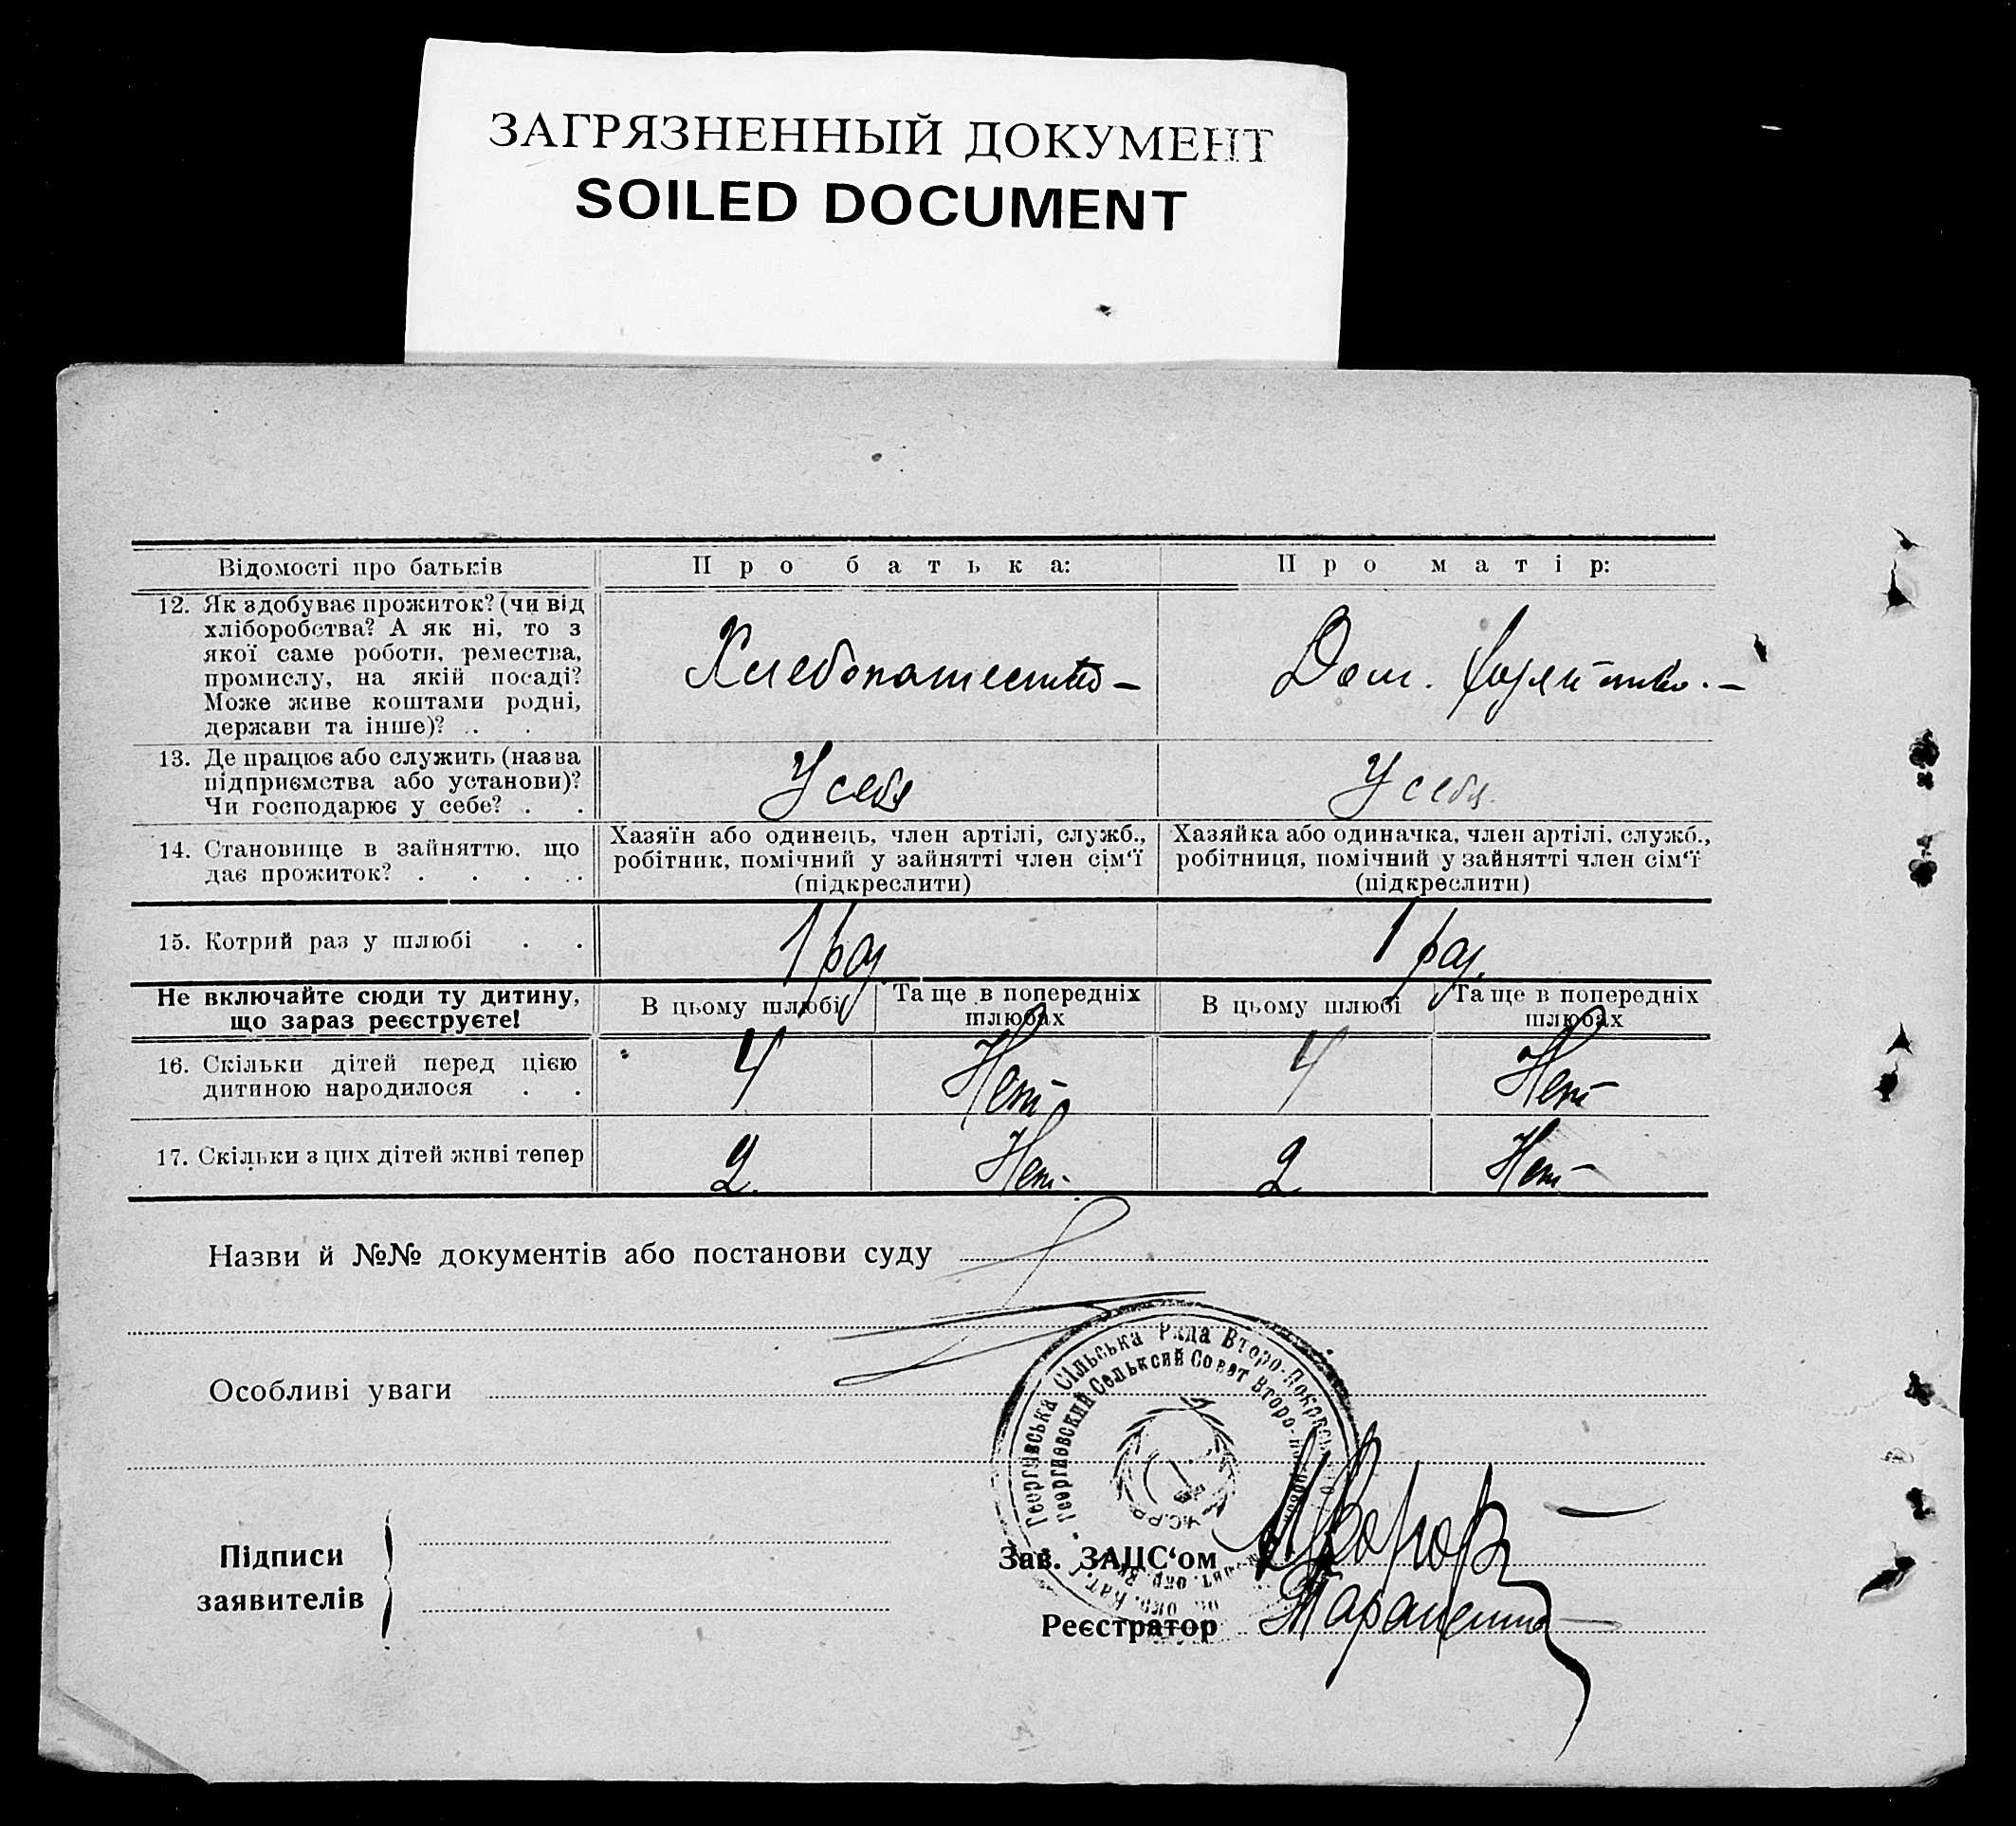 ЗАГРЯЗНЕННЫЙ ДОКУМЕНТ
SOILED DOCUMENT
Відомості про батьків
Про батька:
Про матір:
12. Як здобуває прожиток? (чи від
хліборобства? А як ні, то з
якої саме роботи, ремества,
промислу, на якій посаді?
Може живе коштами родні,
держави та інше)? . .
Хлебопашество —
Дом. хозяйство. —
13. Де працює або служить (назва
підприємства або установи)?
Чи господарює у себе? . .
У себя
У себя.
14. Становище в зайняттю, що
дає прожиток? . . . .
Хазяїн або одинець, член артілі, служб.,
робітник, помічний у зайнятті член сім‘ї
(підкреслити)
Хазяйка або одиначка, член артілі, служб.,
робітниця, помічний у зайнятті член сім‘ї
(підкреслити)
15. Котрий раз у шлюбі . .
1 раз
1 раз.
Не включайте сюди ту дитину,
що зараз реєструєте!
В цьому шлюбі
Та ще в попередніх
шлюбах
В цьому шлюбі
Та ще в попередніх
шлюбах
16. Скільки дітей перед цією
дитиною народилося . .
4
Нет
4
Нет
17. Скільки з цих дітей живі тепер
2.
Нет.
2
Нет
Назви й №№ документів або постанови суду
Особливі уваги
Георгівська Сільська Рада Второ-Покровськ
Георгиевский Сельксий Совет Второ-Покров
У.С.Р.Р.
Підписи
заявителів
Зав. ЗАЦС‘ом
Реєстратор